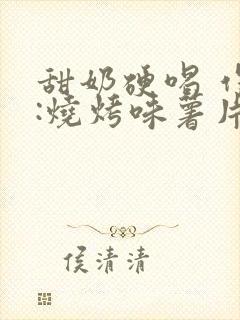 甜奶硬唱
:燒烤味薯片
侯清清